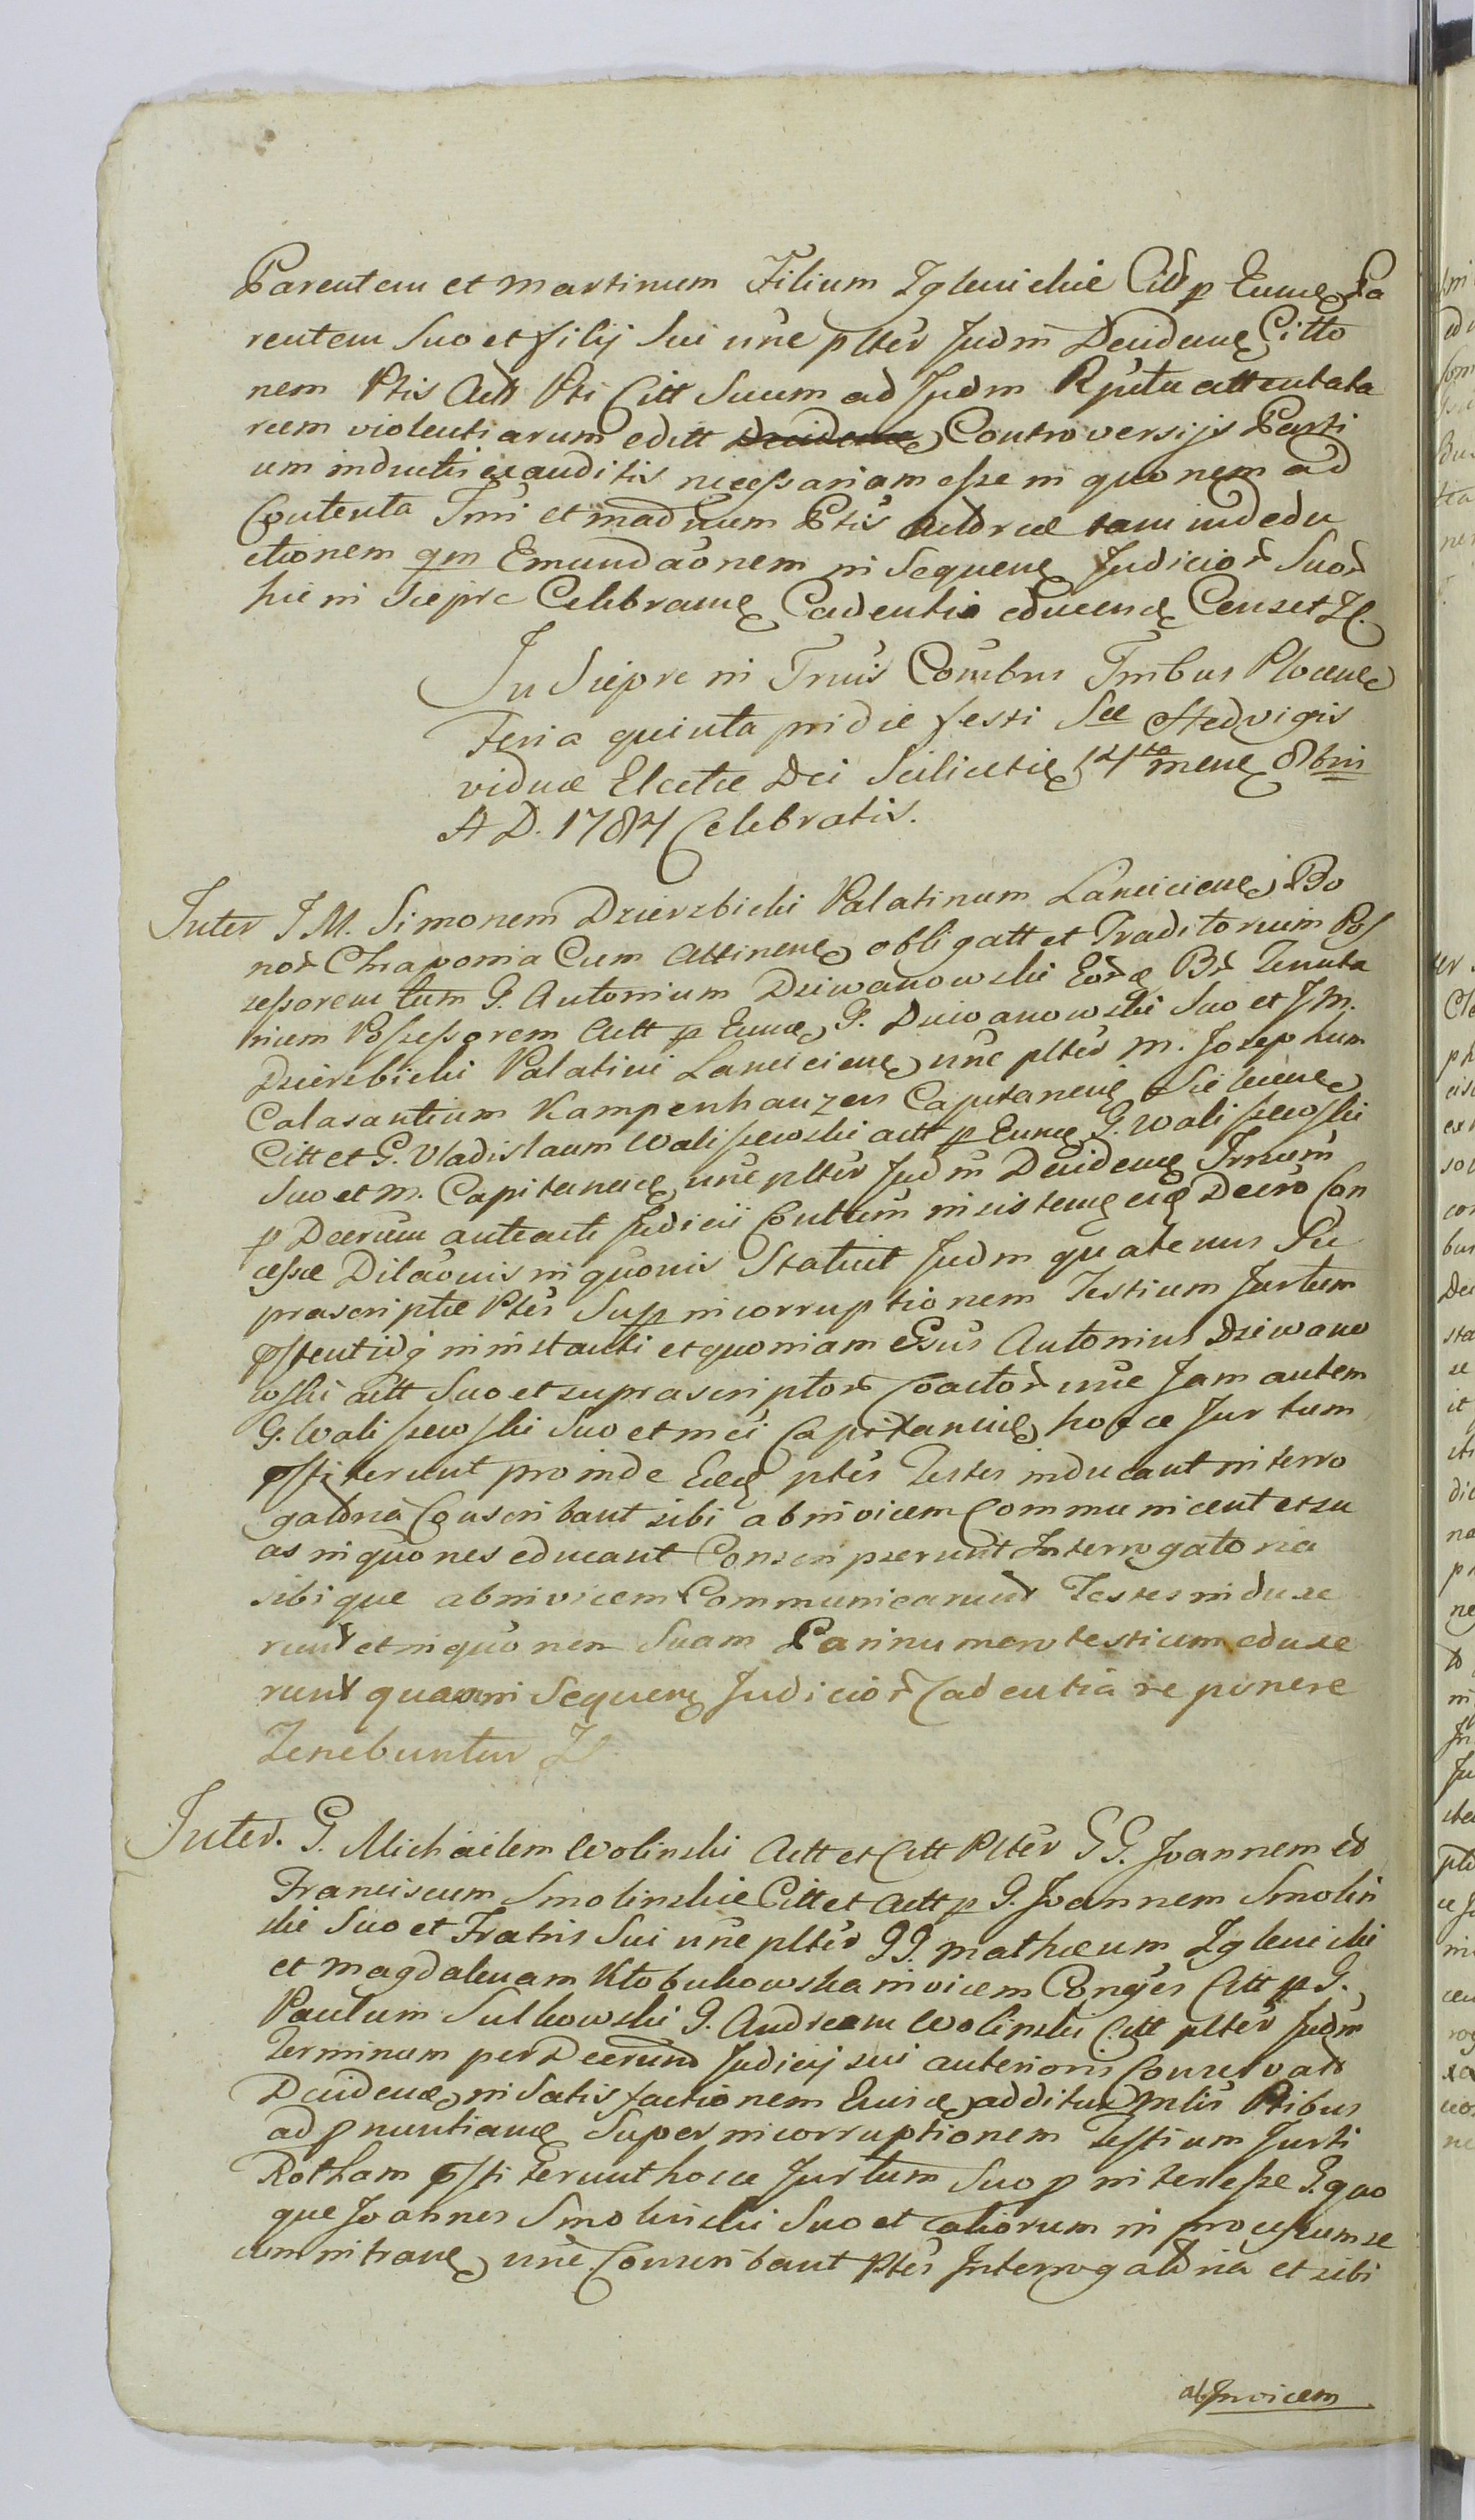 Parentem et Martinum Filium Zglenickie Citt p Eund Pa
rentem Suo et filij Sui nne plter Judm Decidend Citto
nem Ptis Actt Pti Citt Suum ad Judm Rputu attentata
rum violentiarum editt Controversijs Parti
um inductis exauditis necessariam esse in quonem ad
Contenta Tmi et mad num Ptis Actorcæ tam indedu
ctionem qm Emundaonem in Sequen Judicior Suor
hic in Sieprc Celebrand Cadentia educend Censet Zl.
In Sieprc in Tmis Conibus Tribus Plocen
Feria quinta pridie festi Scæ Hedvigis
viduæ Electæ Dei Scilicetie 14ta mens 8bris
A D. 1784 Celebratis.
Inter J M. Simonem Dzierzbicki Palatinum Lanciciens Bo
nor Chraponia Cum Attinen obligatt et Traditorium Pos
sessorem tum G. Antonium Dziwanowski Eord Br Tenuta
rium Possessorem Actt p Eund G. Dziwanowski Suo et J M.
Dzierzbicki Palatini Lanciciens nne pltes M. Josephum
Calasantium Kampenhauzen Capitaneu
Citt et G. Vladislaum Waliszewski actt p Eund G. Waliszewski
Suo et M. Capitanei nne pltes Judm Decidend Trnum
p Decrum anteacti Judicii Contum insistend eid Decro Con
cessæ Dilaonis in quonis Statuit Judm quatenus Su
prascriptæ Ptes Sup incorruptionem Testium Jurtum
pstent idq in instanti et quoniam Gsus Antonius Dziwano
wski actt Suo et suprascriptor Coactor nne Jam autem
G. Waliszewski Suo et mci Capitanei hocce Jurtum
pstiterunt proinde Eæd ptes Testes inducant interro
gatoria Conscribant sibi abinvicem Communicent et su
as inquones educant Conscripserunt Interrogatoria
sibique abinvicem Communicarunt Testes induxe
runt et inquonem Suam Parinumero testium eduxe
runt quam in Sequen Judicior Cadentia reponere
Tenebuntur Zl
Inter. G. Michaelem Wolinski Actt et Citt Pltes GG. Joannem et
Franciscum Smolinskie Citt et Actt p G. Joannem Smolin
ski Suo et Fratris Sui nne pltes GG. Mathæum Zglenicki
et Magdalenam Kłobukowska invicem Conges Citt p G.
Paulum Sulkowski G. Andream Wolinski Citt pltes Judm
Terminum per Decrum Judicij sui anterioris Conservatt
Decidend in Satisfactionem Eiusd additur mlis Ptibus
ad pnuntiand Super incorruptionem Testium Jurti
Rotham pstiterunt hocce Jurtum Suo p interesse G. quo
que Joannes Smolinski Suo et aliorum in processum se
cum intran nne Conscribant Ptes Interrogatoria et sibi
ab Invicem